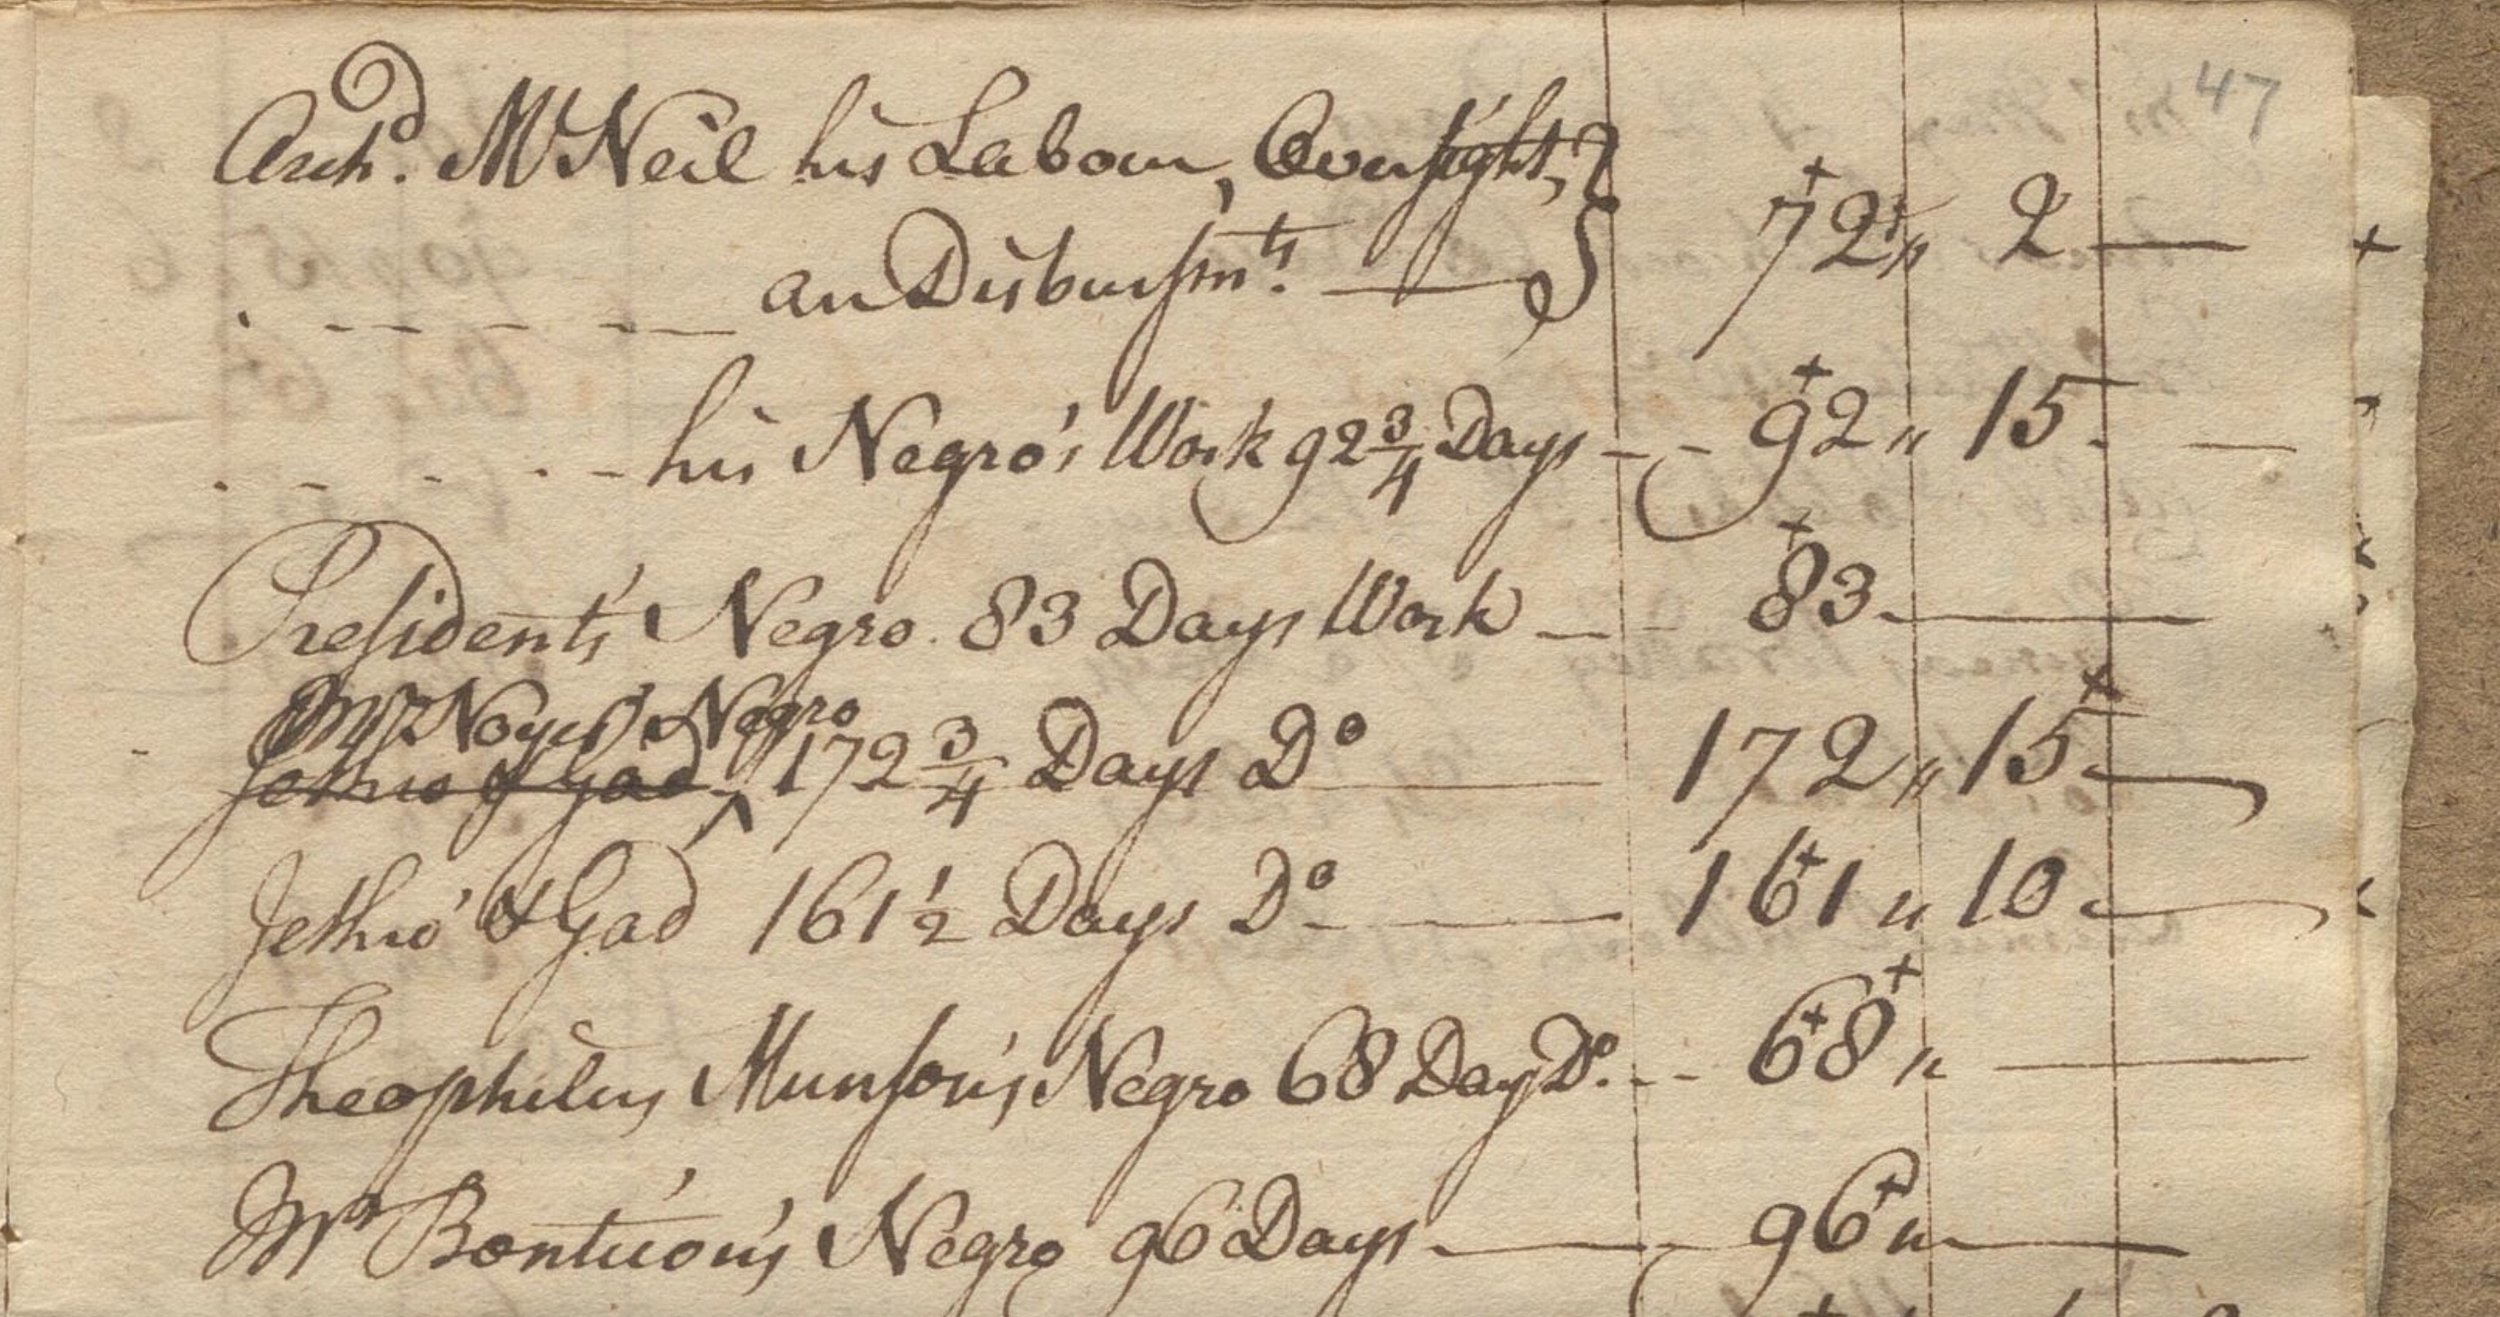 47
Archd. McNeil his Labour, Oversight,
an Disbursmts. — 72 " 2 —
his Negro's Work 92 3/4 Days - - 92 " 15 - —
President's Negro 83 Days Work — - 83 - —
Mr Noyes's Negro
Jethro & Gad ^ 172 3/4 Days Do — 172 " 15 —
Jethro & Gad 161 1/2 Days Do — 161 " 10 —
Theophilus Munson's Negro 68 Day Do. - - 68 " —
Mr Bontuon's Negro 96 Days — 96 " —